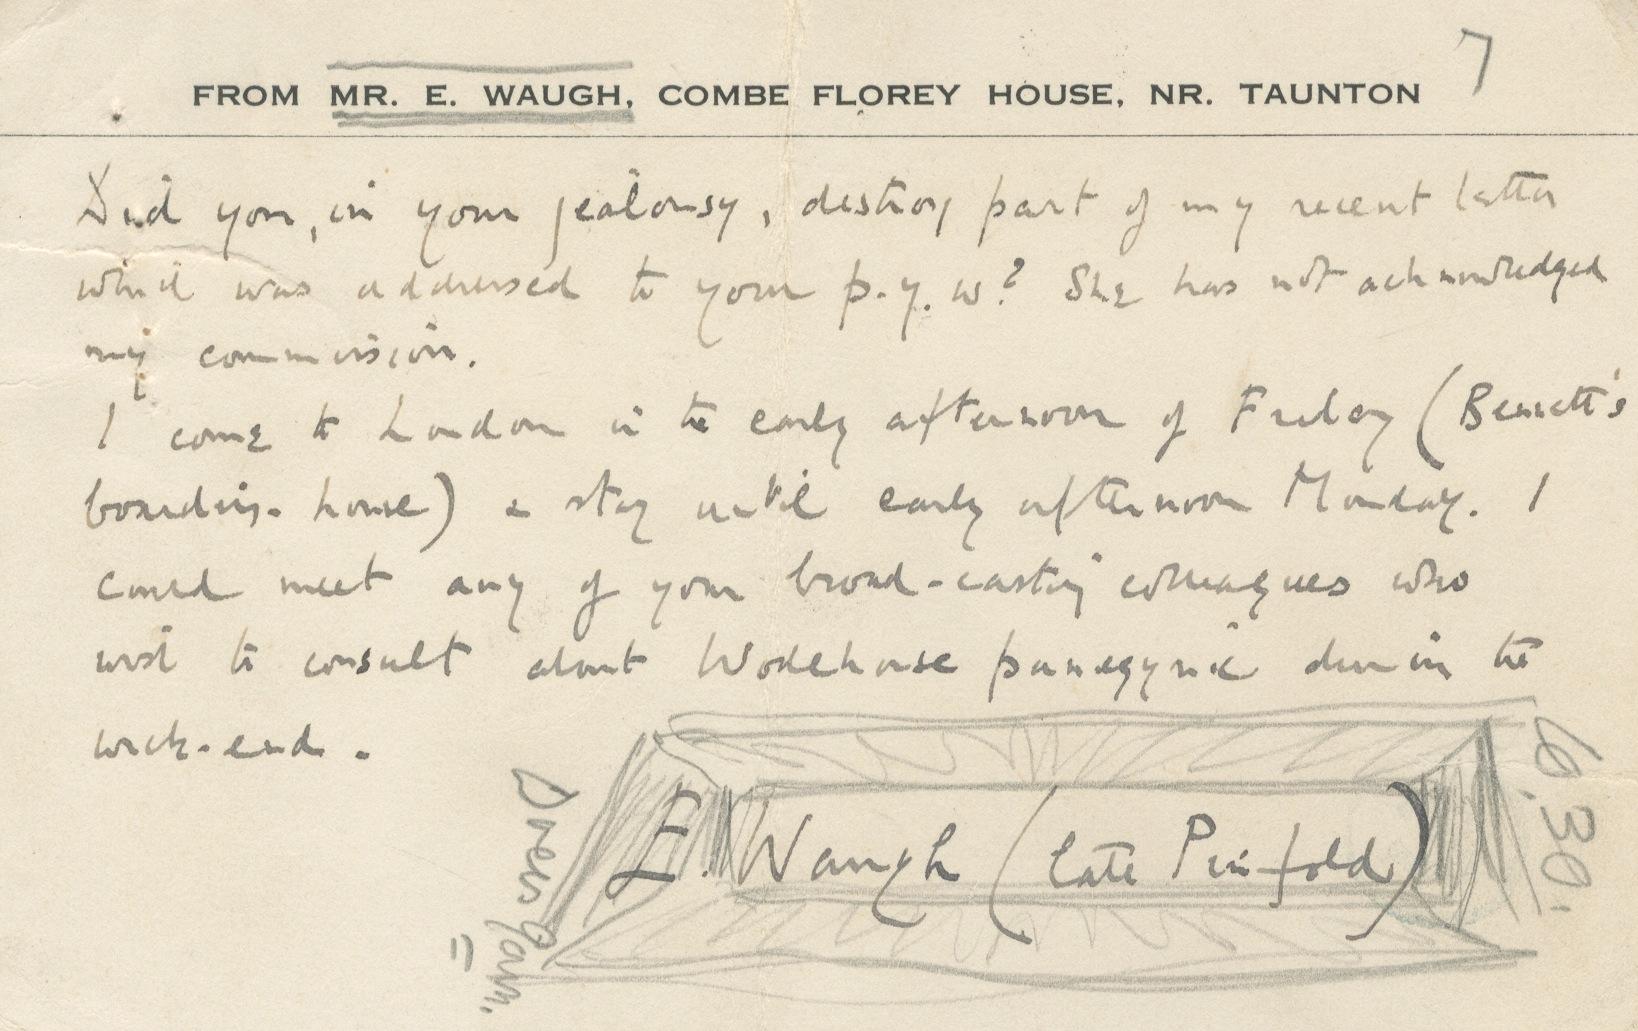 7
FROM MR. E. WAUGH, COMBE FLOREY HOUSE, NR. TAUNTON
Did you, in your jealousy, destroy part of my recent letter
which was addressed to your p.y.w? She has not acknowledged
my commission.
I come to London in the early afternoon of Friday (Bennett's
boarding-house) & stay until early afternoon Monday. I
could meet any of your broad-casting colleagues who
wish to consult about Wodehouse panegyric durin the
week-end.
E. Waugh (late Pinfold)
6.30.